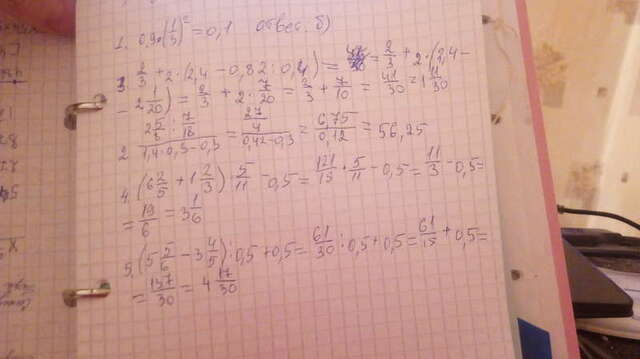 1. 0,9·(1/3)² = 0,1 ответ. б)
3. 2/3 + 2·(2,4 − 0,82 : 0,4) = 2/3 + 2·(2,4 −
− 2 1/20) = 2/3 + 2·7/20 = 2/3 + 7/10 = 41/30 = 1 11/30
2. (2 5/8 : 7/18)/(1,4·0,3−0,3) = (27/4)/(0,42−0,3) = 6,75/0,12 = 56,25
4. (6 2/5 + 1 2/3)·5/11 − 0,5 = 121/15 · 5/11 − 0,5 = 11/3 − 0,5 =
= 19/6 = 3 1/6
5. (5 5/6 − 3 4/5) : 0,5 + 0,5 = 61/30 : 0,5 + 0,5 = 61/15 + 0,5 =
= 137/30 = 4 17/30